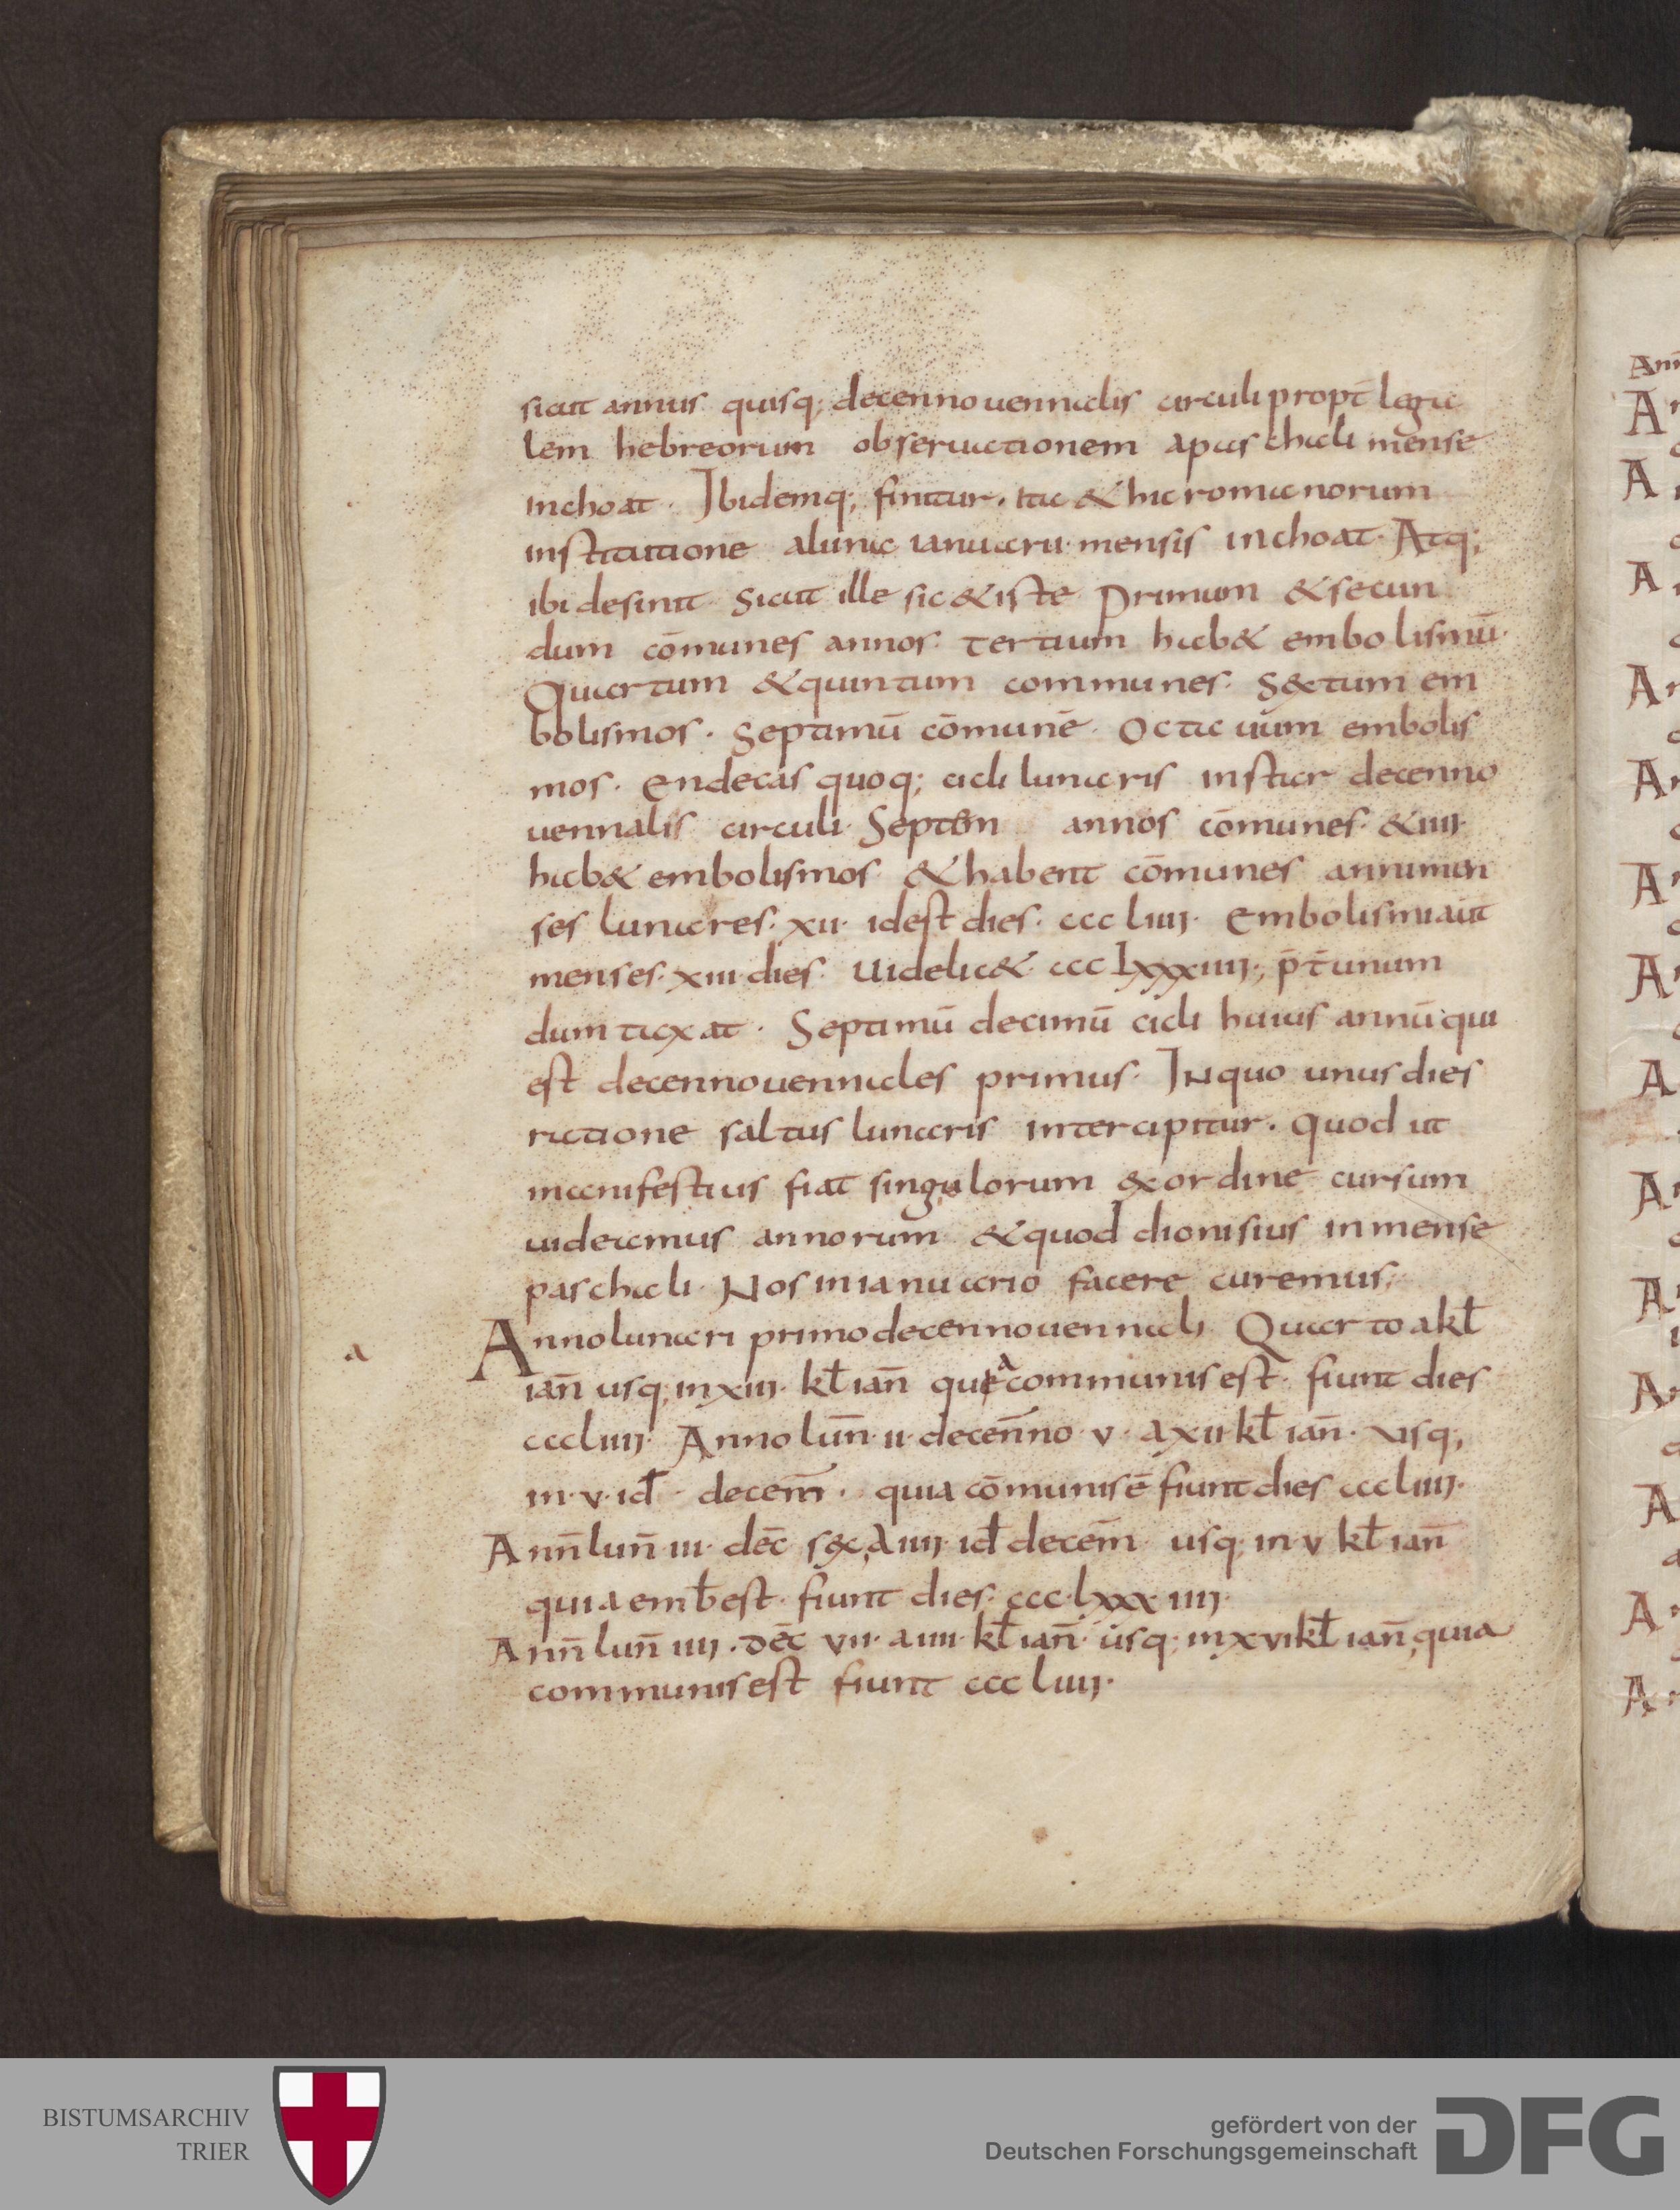 sicut annus quisq; decennouennalis circuli propt̄ lega
lem hebreorum obseruationem apas chali mense
inchoat · Ibidemq; finitur · ita & hic romanorum
institutione aluna ianuarii · mensis inchoat · Atq;
ibi desinit · Sicut ille sic & iste primum & secun
dum cōmunes annos · tertium hab& embolismū ·
Quartum & quintum communes · S&tum em
bolismos · Septimū cōmunē · Octauum embolis
mos · Endecas quoq; cicli lunaris instar decenno
uennalis circuli · Septem annos cōmunes · & iiii ·
hab& embolismos · & habent cōmunes anni men
ses lunares · xii · idest dies · ccc liiii · Embolismi aut
menses · xiii · dies · Uidelic& · ccc lxxxiiii ·; p̄t̄ unum
dum taxat · Septimū decimū cicli huius annū qui
est decennouennales primus · INquo unus dies
ratione saltus lunaris intercipitur · quod ut
manifestius fiat singulorum exordine cursum
uideamus annorum & quod dionisius in mense
paschali · Nos in ianuario facere curemus ·
Anno lunari primo decennouennali · Quarto a kl̄
a
ian̄ usq; in xiii · kl̄ ian̄ que a communis est · fiunt dies
cccliiii · Anno lun̄ · ii · decen̄no · v · a xii · kl̄ ian̄ · usq;
in · v · id̄ · decem̄ · quia cōmunis ē fiunt dies cccliiii ·
Ann̄ lun̄ · iii · dec̄ sex, a iiii · id̄ decem̄ usq; in · v kl̄ ian̄
quia emb̄ est · fiunt dies · ccc · lxxx iiii ·
Ann̄ lun̄ iiii · dec̄ vii · a iiii · kl̄ ian̄ · usq; in xvi kl̄ ian̄, quia
communis est fiunt ccc liiii ·
Ann
A
A
A
A
A
A
A
A
A
A
A
A
A
A
BISTUMSARCHIV
TRIER
gefördert von der
Deutschen Forschungsgemeinschaft
DFG